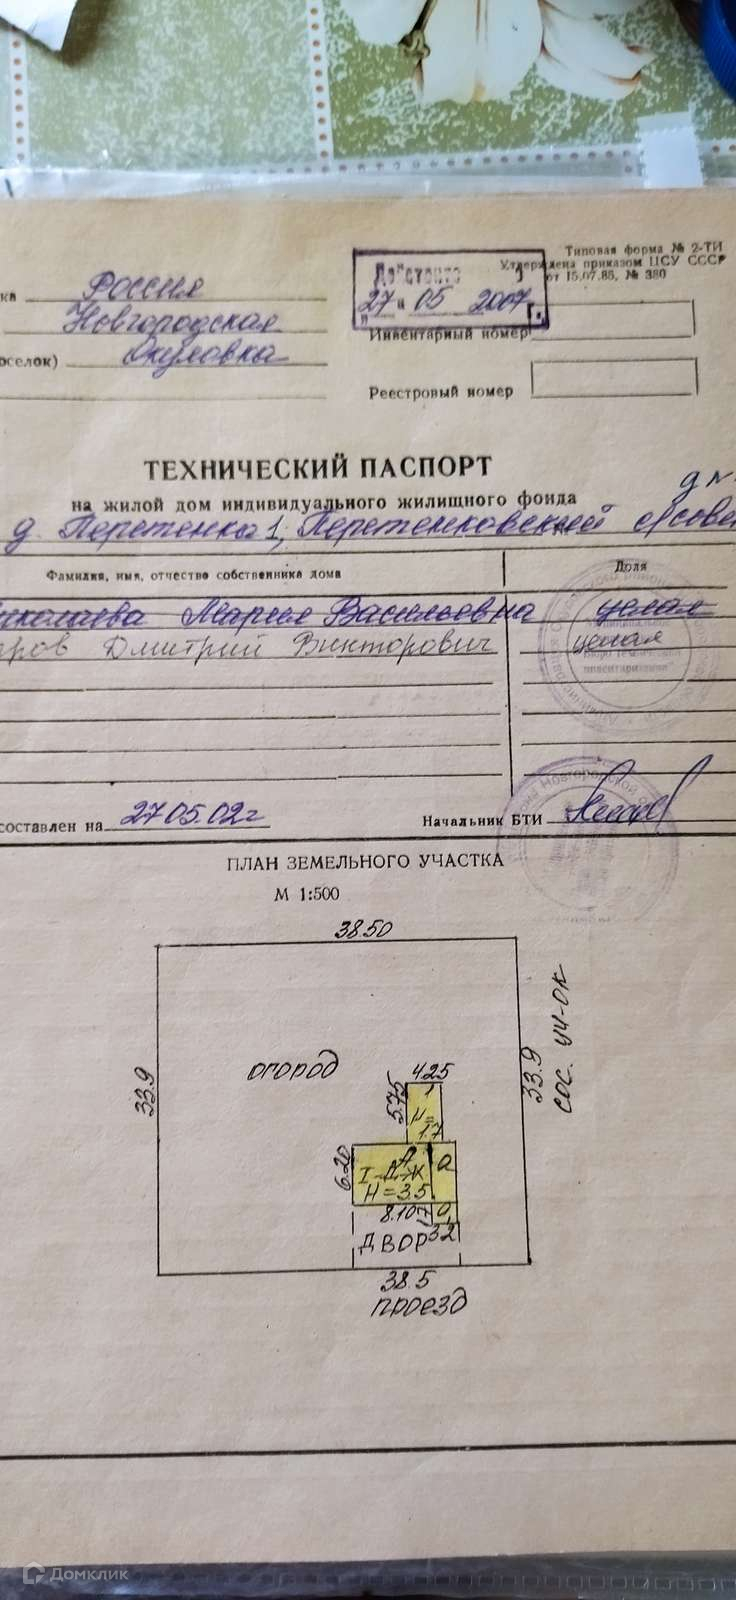 Типовая форма № 2-ТИ
Утверждена приказом ЦСУ СССР
от 15.07.85, № 380
27 05 2007 г.
ка Россия
Новгородская
оселок) Окуловка
Инвентарный номер
Реестровый номер
ТЕХНИЧЕСКИЙ ПАСПОРТ
на жилой дом индивидуального жилищного фонда
д. Перетенка 1,
Фамилия, имя, отчество собственника дома
Доля
иколаева Мария Васильевна целая
аров Дмитрий Викторович целая
составлен на 27.05.02г
Начальник БТИ
ПЛАН ЗЕМЕЛЬНОГО УЧАСТКА
М 1:500
38.50
огород
33.9
33.9
сос. уч-ок
4.25
5.75
1
Н=
1.7
6.20
А
а
I-Д-Ж
Н=3.5
8.10
3.2
двор
38.5
проезд
Домклик